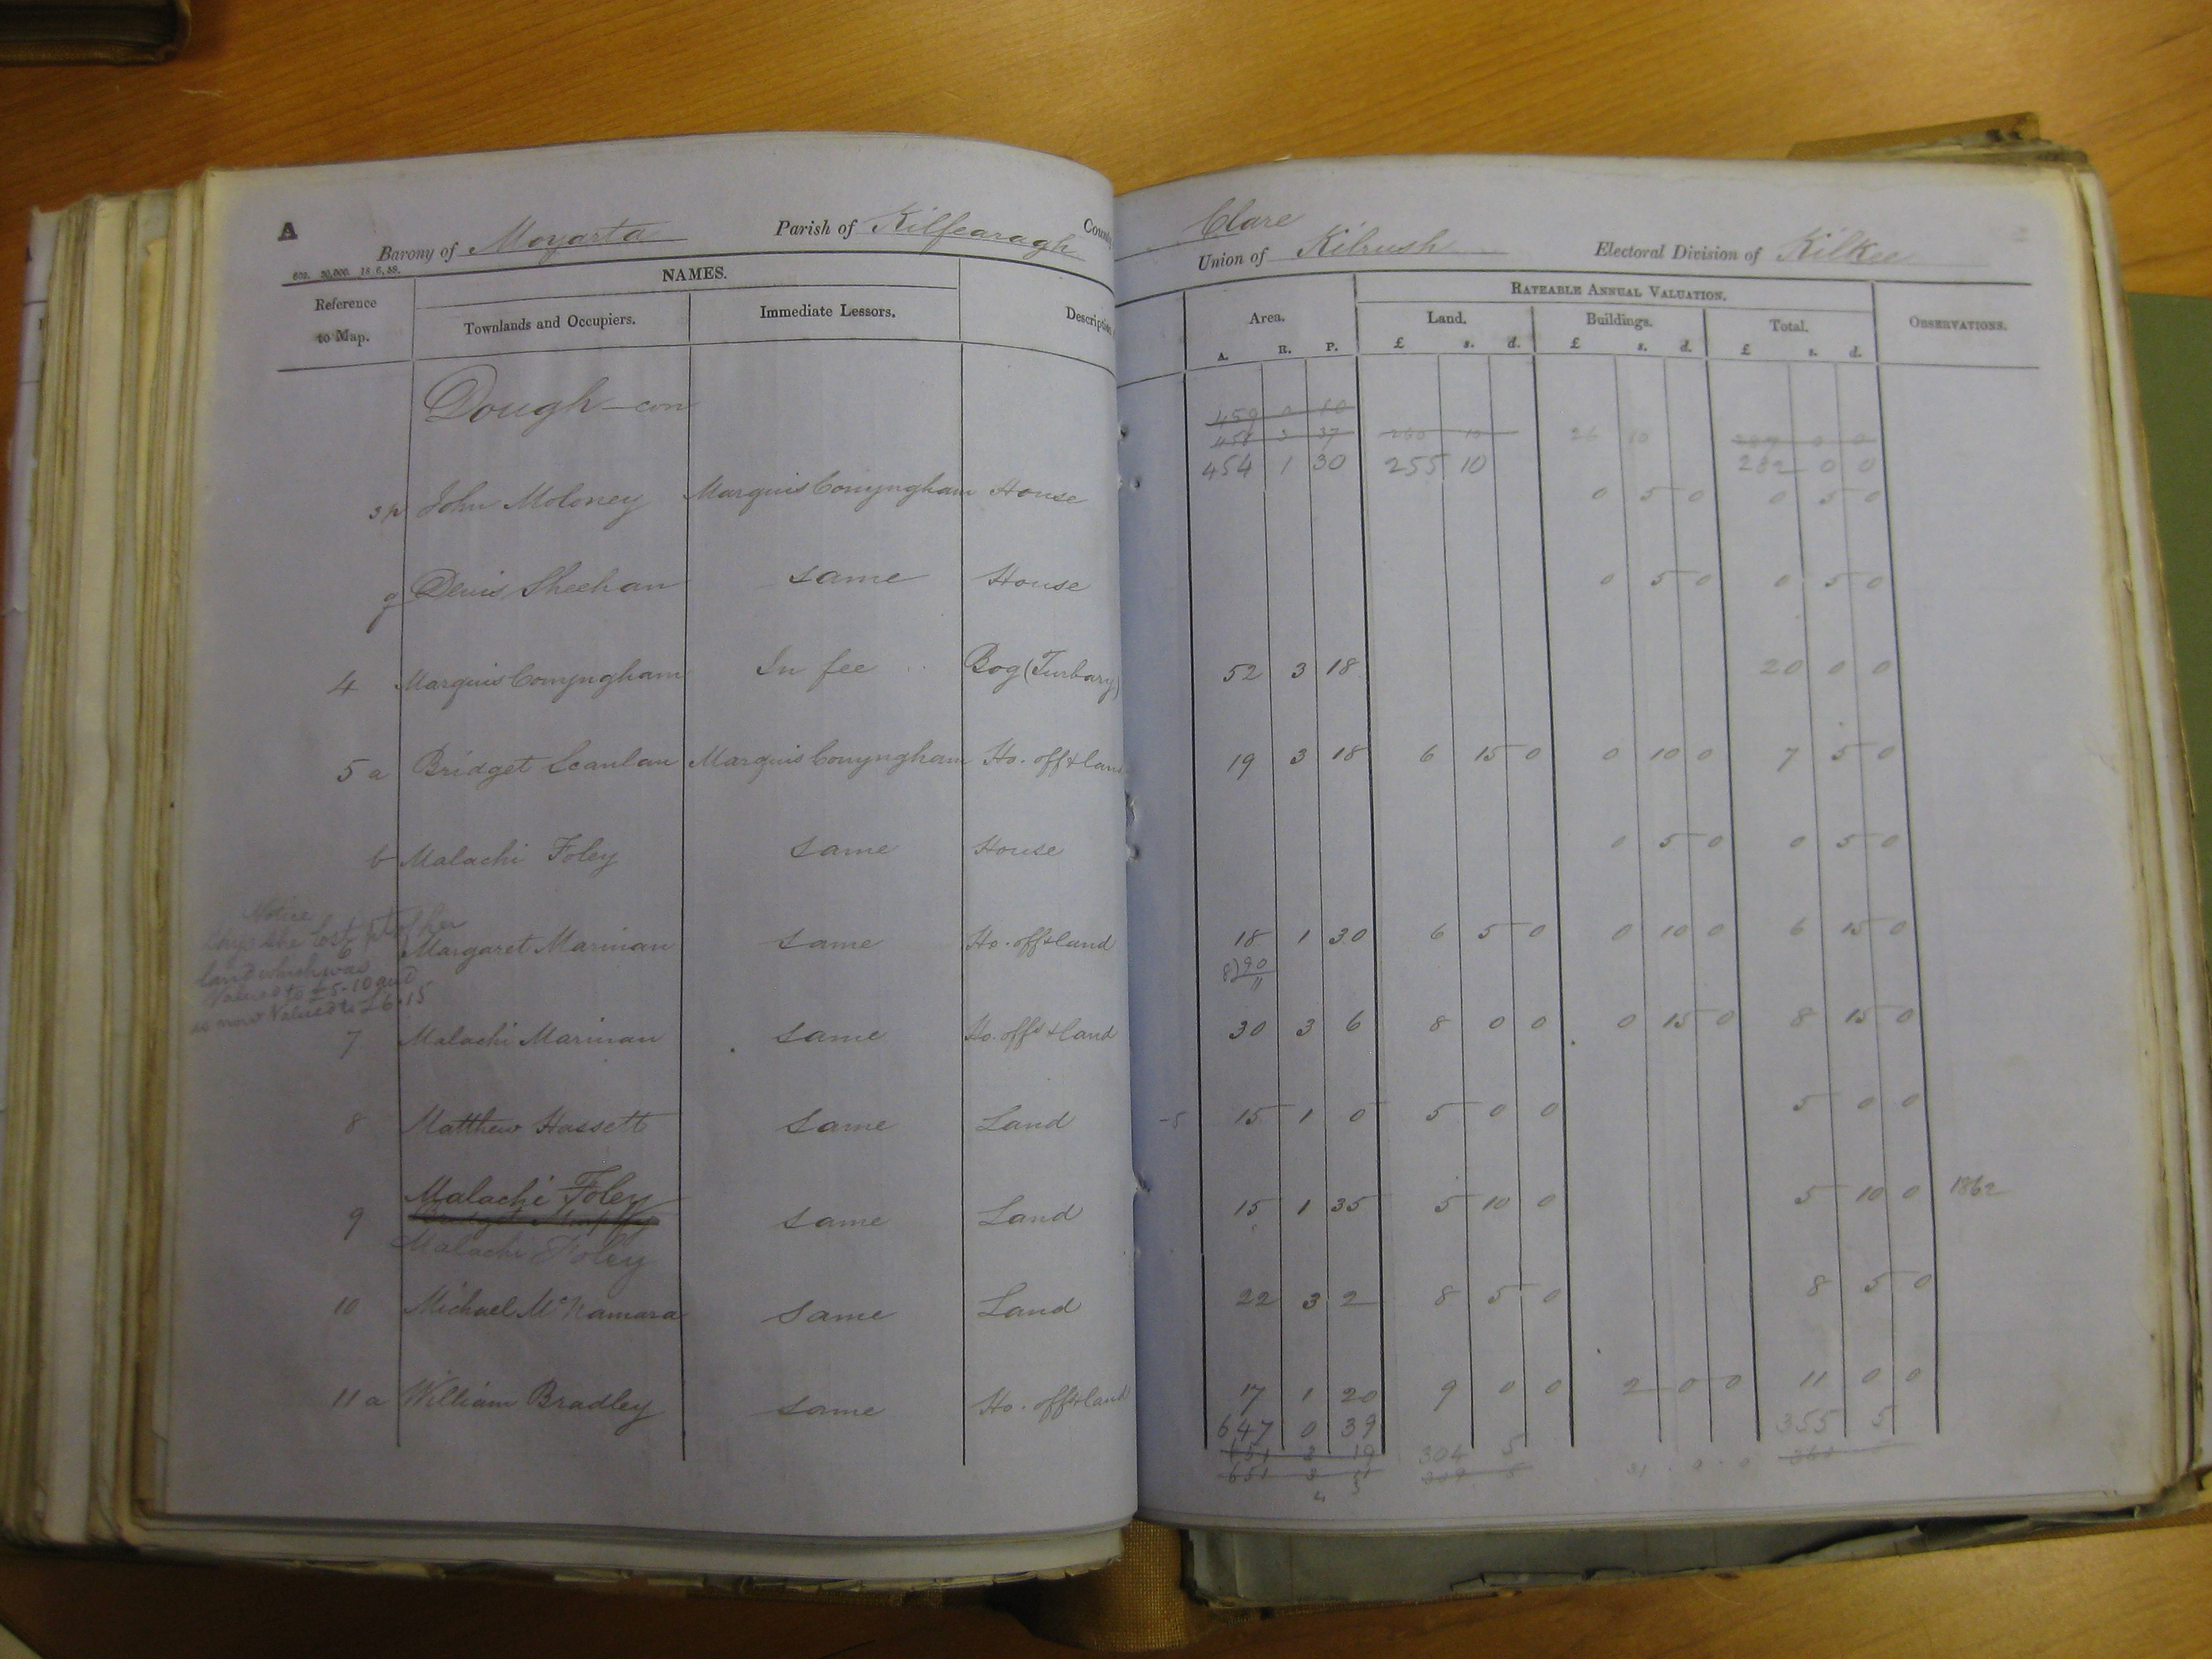 A
Barony of Moyarta Parish of Kilfearagh County Clare
Union of Kilrush Electoral Division of Kilkee
Reference to Map. NAMES. Area. RATEABLE ANNUAL VALUATION. OBSERVATIONS.
Townlands and Occupiers. Immediate Lessors. Description Land. Buildings. Total.
A. R. P. £ s. d. £ s. d. £ s. d.
Dough-con
459 0 10
458 3 37 260 10 26 10
454 1 30 255 10 282 0 0
3p John Moloney Marquis Conyngham House 0 5 0 0 5 0
q Denis Sheehan same House 0 5 0 0 5 0
4 Marquis Conyngham In fee Bog (Turbary) 52 3 18 20 0 0
5 a Bridget Scanlan Marquis Conyngham Ho. off & land 19 3 18 6 15 0 0 10 0 7 5 0
b Malachi Foley same House 0 5 0 0 5 0
Notice
Says she lost pt of her
land which was
Valued to £5-10 and
is now Valued to £6.15
6 Margaret Marinan same Ho. off & land 18 1 30 6 5 0 0 10 0 6 15 0
8)90
11
7 Malachi Marinan same Ho. offs & land 30 3 6 8 0 0 0 15 0 8 15 0
8 Matthew Hassett same Land 15 1 0 5 0 0 5 0 0
Malachi Foley
9 Bridget same Land 15 1 35 5 10 0 5 10 0 1862
Malachi Foley
10 Michael McNamara same Land 22 3 2 8 5 0 8 5 0
11 a William Bradley same Ho. off & land 17 1 20 9 0 0 2 0 0 11 0 0
647 0 39 355 5
651 2 19 304 5
651 3 309 5 31 0 0